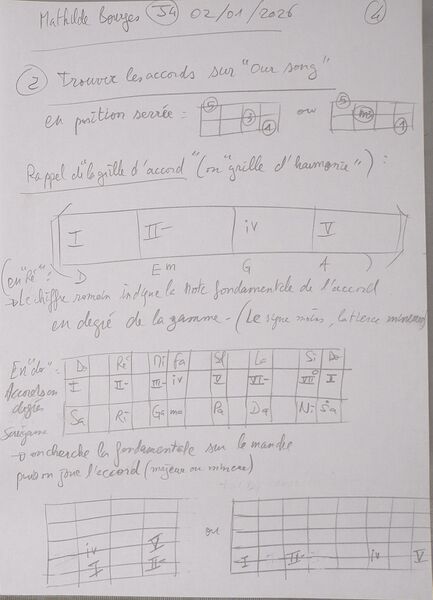 Mathilde Bourges J4 02/01/2026 4
2 Trouver les accords sur "our song"
en position serrée = 5 3 1 ou 5 m3 1
Rappel de "la grille d'accord" (ou "grille d'harmonie") :
I II- iv V
(en "Ré" : D Em G A )
→ Le chiffre romain indique la note fondamentale de l'accord
en degré de la gamme - (Le signe moins, la tierce mineure)
En "do" : Do Ré Mi fa Sol La Si Do
Accords en degrés I II- III- iv V VI- VII° I
Sargam Sa Ri Ga ma Pa Da Ni Sa
→ on cherche la fondamentale sur le manche
puis on joue l'accord (majeur ou mineur)
iv V
I II-
ou
I II- iv V